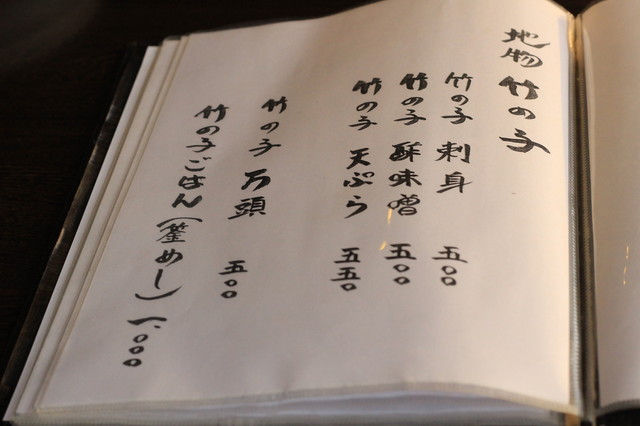 地物 竹の子
竹の子 刺身 五〇〇
竹の子 酢味噌 五〇〇
竹の子 天ぷら 五五〇
竹の子 万頭 五〇〇
竹の子ごはん(釜めし) 一、〇〇〇